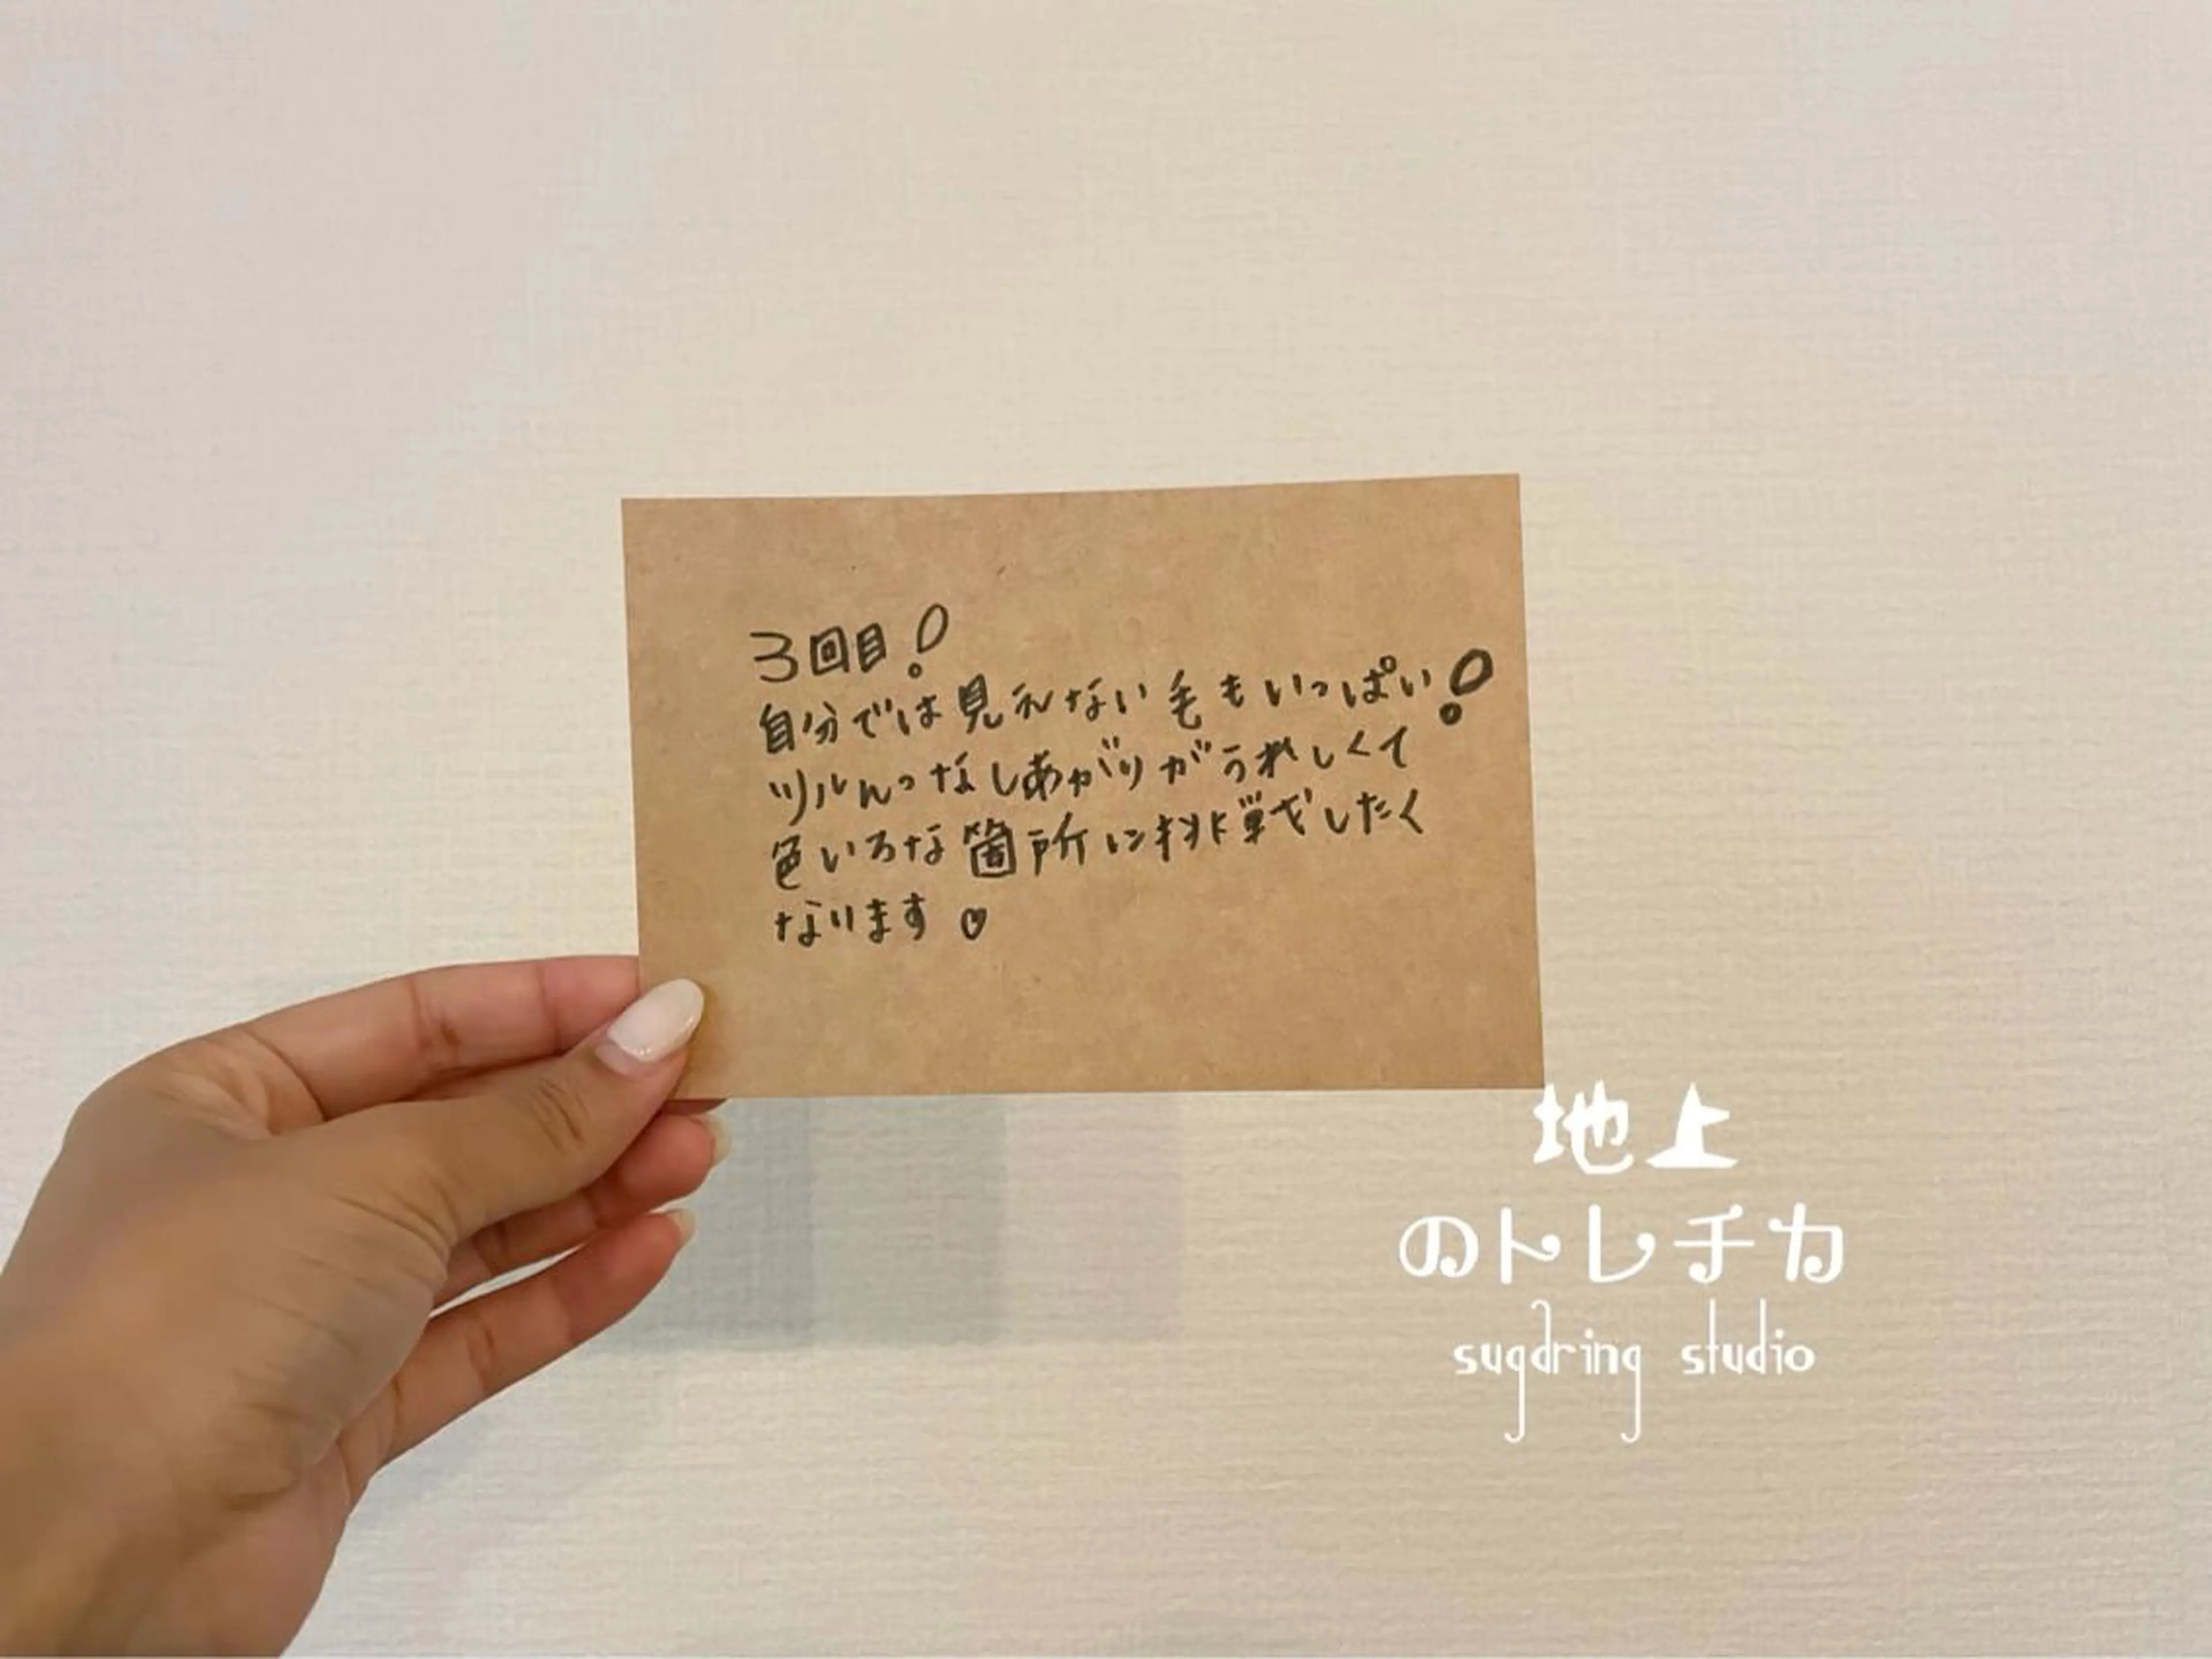 3回目!
自分では見えない毛もいっぱい!
ツルんっなしあがりがうれしくて
色いろな箇所に挑戦したく
なります♡
地上
のトレチカ
sugdring studio